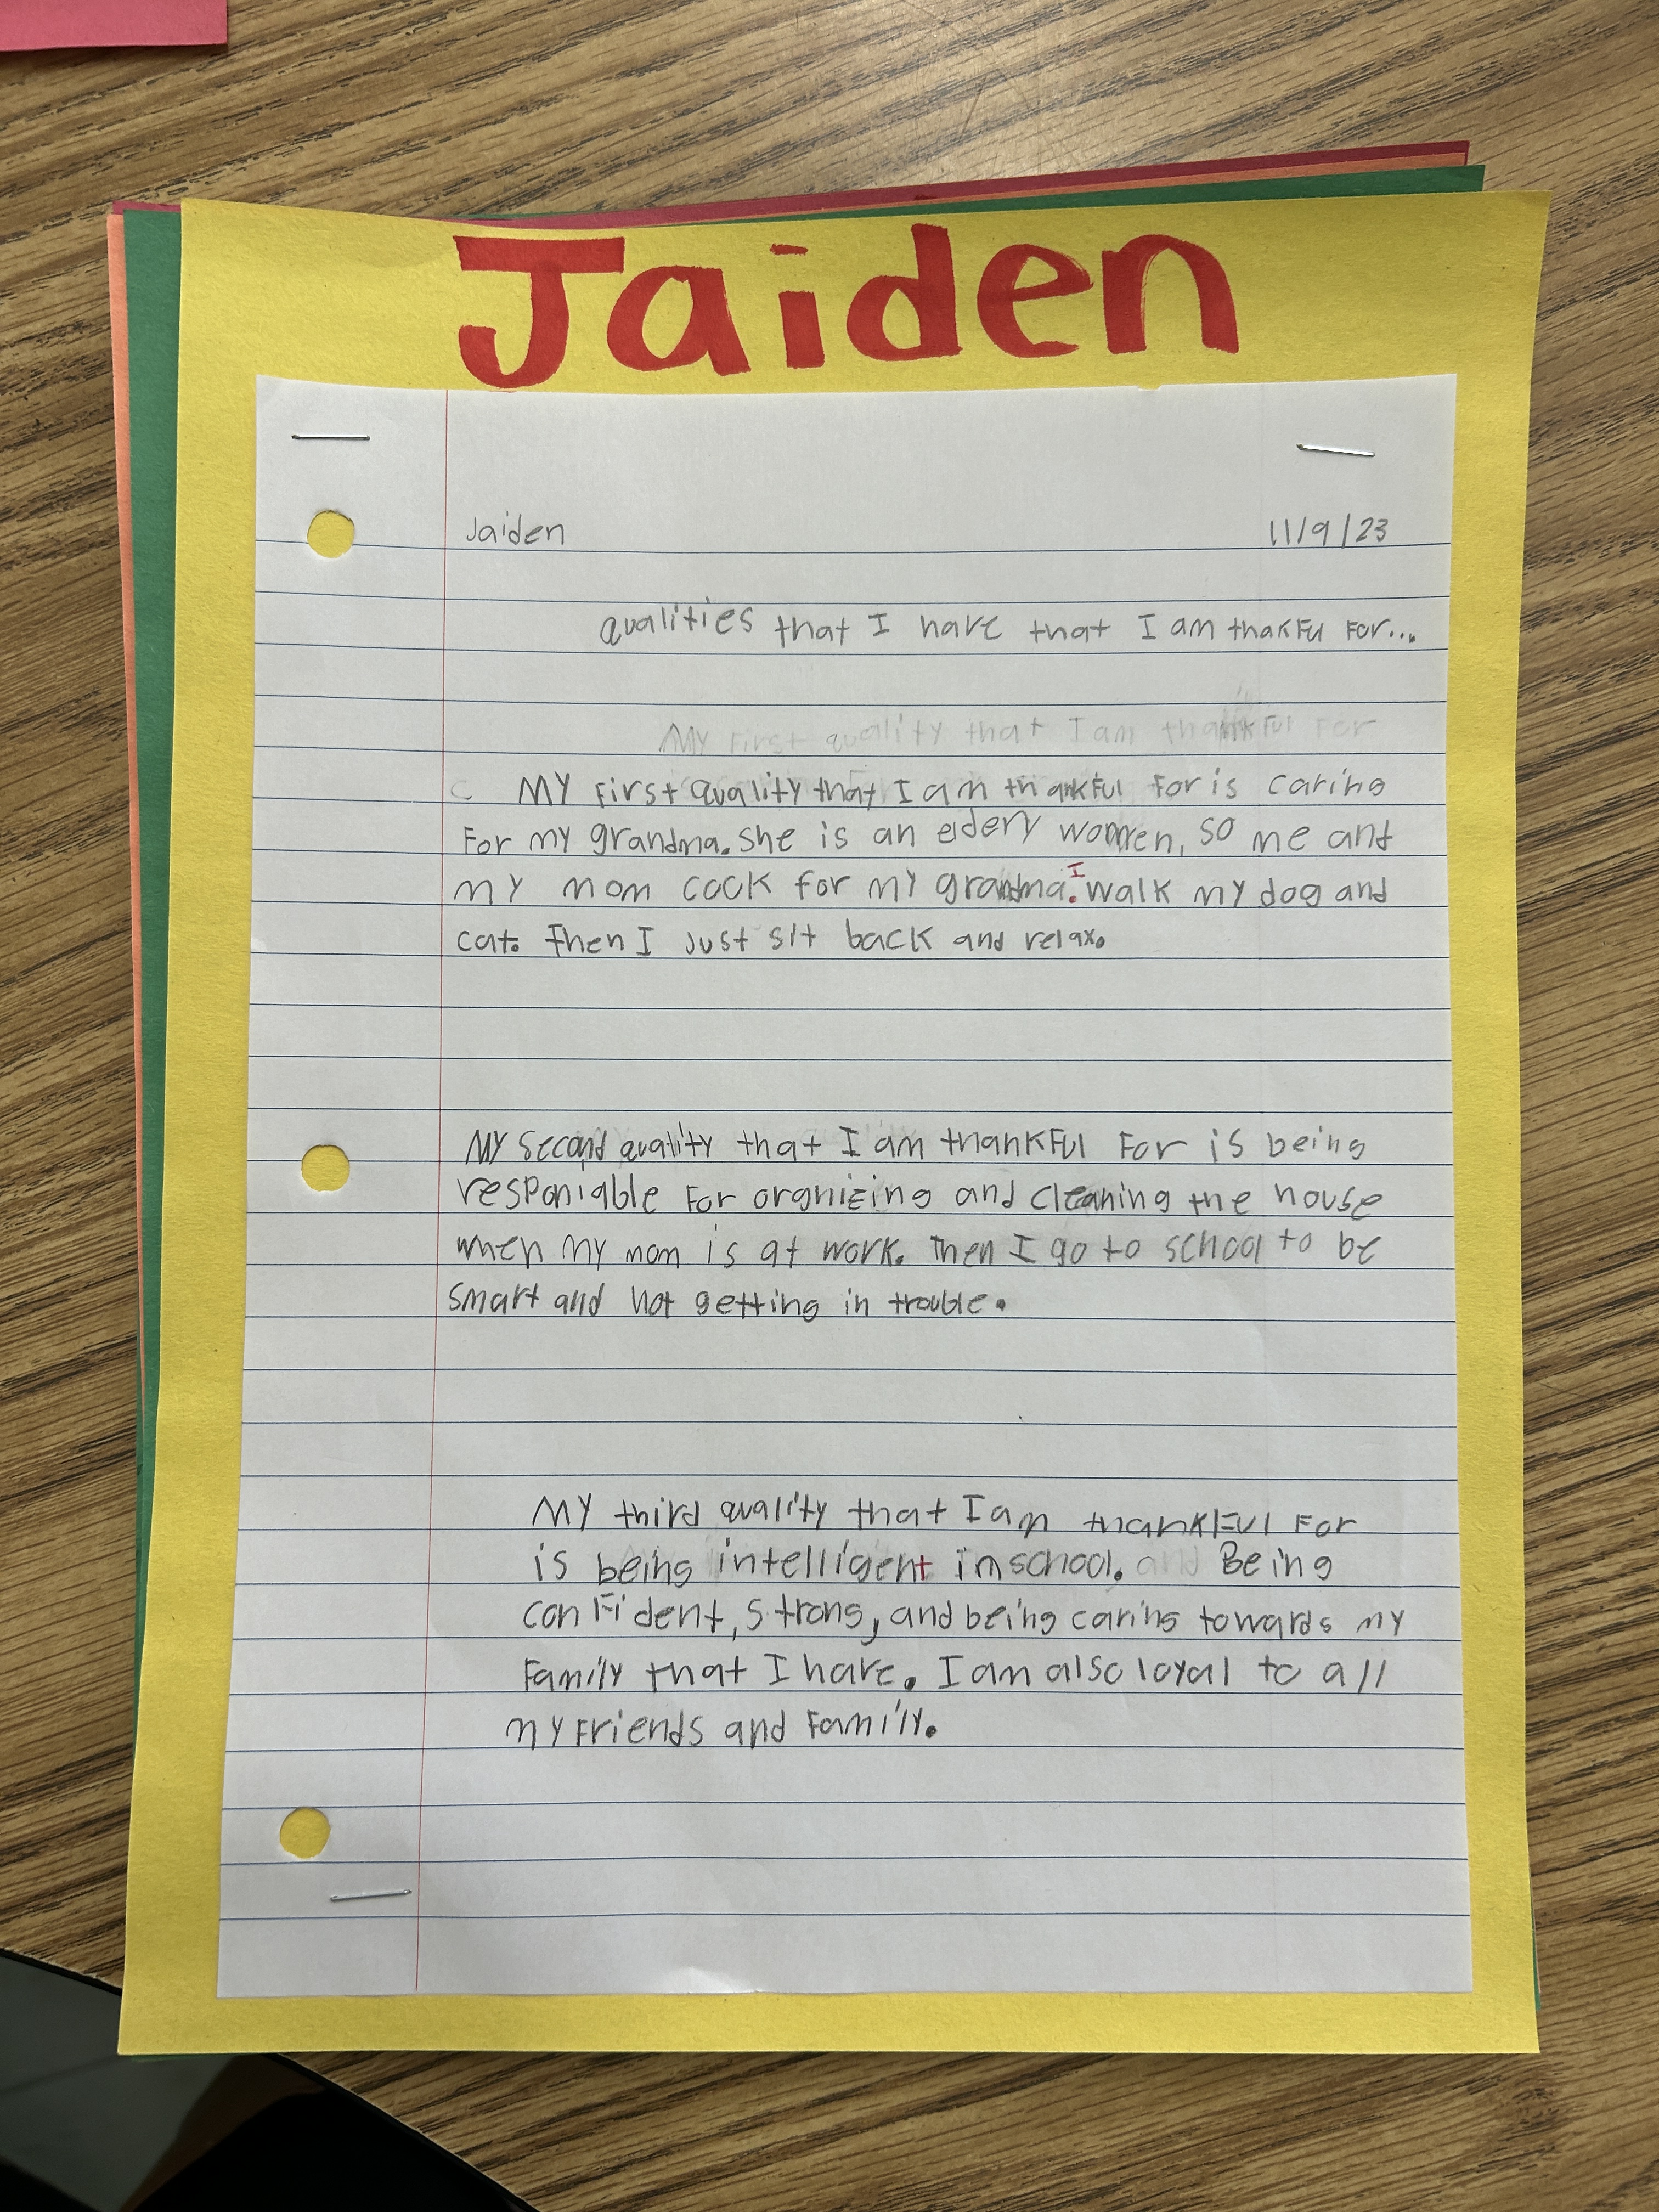 Jaiden
Jaiden 11/9/23
qualities that I have that I am thakful for...
My first quality that I am thankful for
My first quality that I am thankful for is caring
for my grandma. She is an eldery women, so me and
my mom cook for my grandma. I walk my dog and
cat. Then I just sit back and relax.
My second quality that I am thankful for is being
responiable for orgnizing and cleaning the house
when my mom is at work. Then I go to school to be
smart and not getting in trouble.
My third quality that I am thankful for
is being intelligent in school. and Being
confident, strong, and being caring towards my
family that I have. I am also loyal to all
my friends and family.